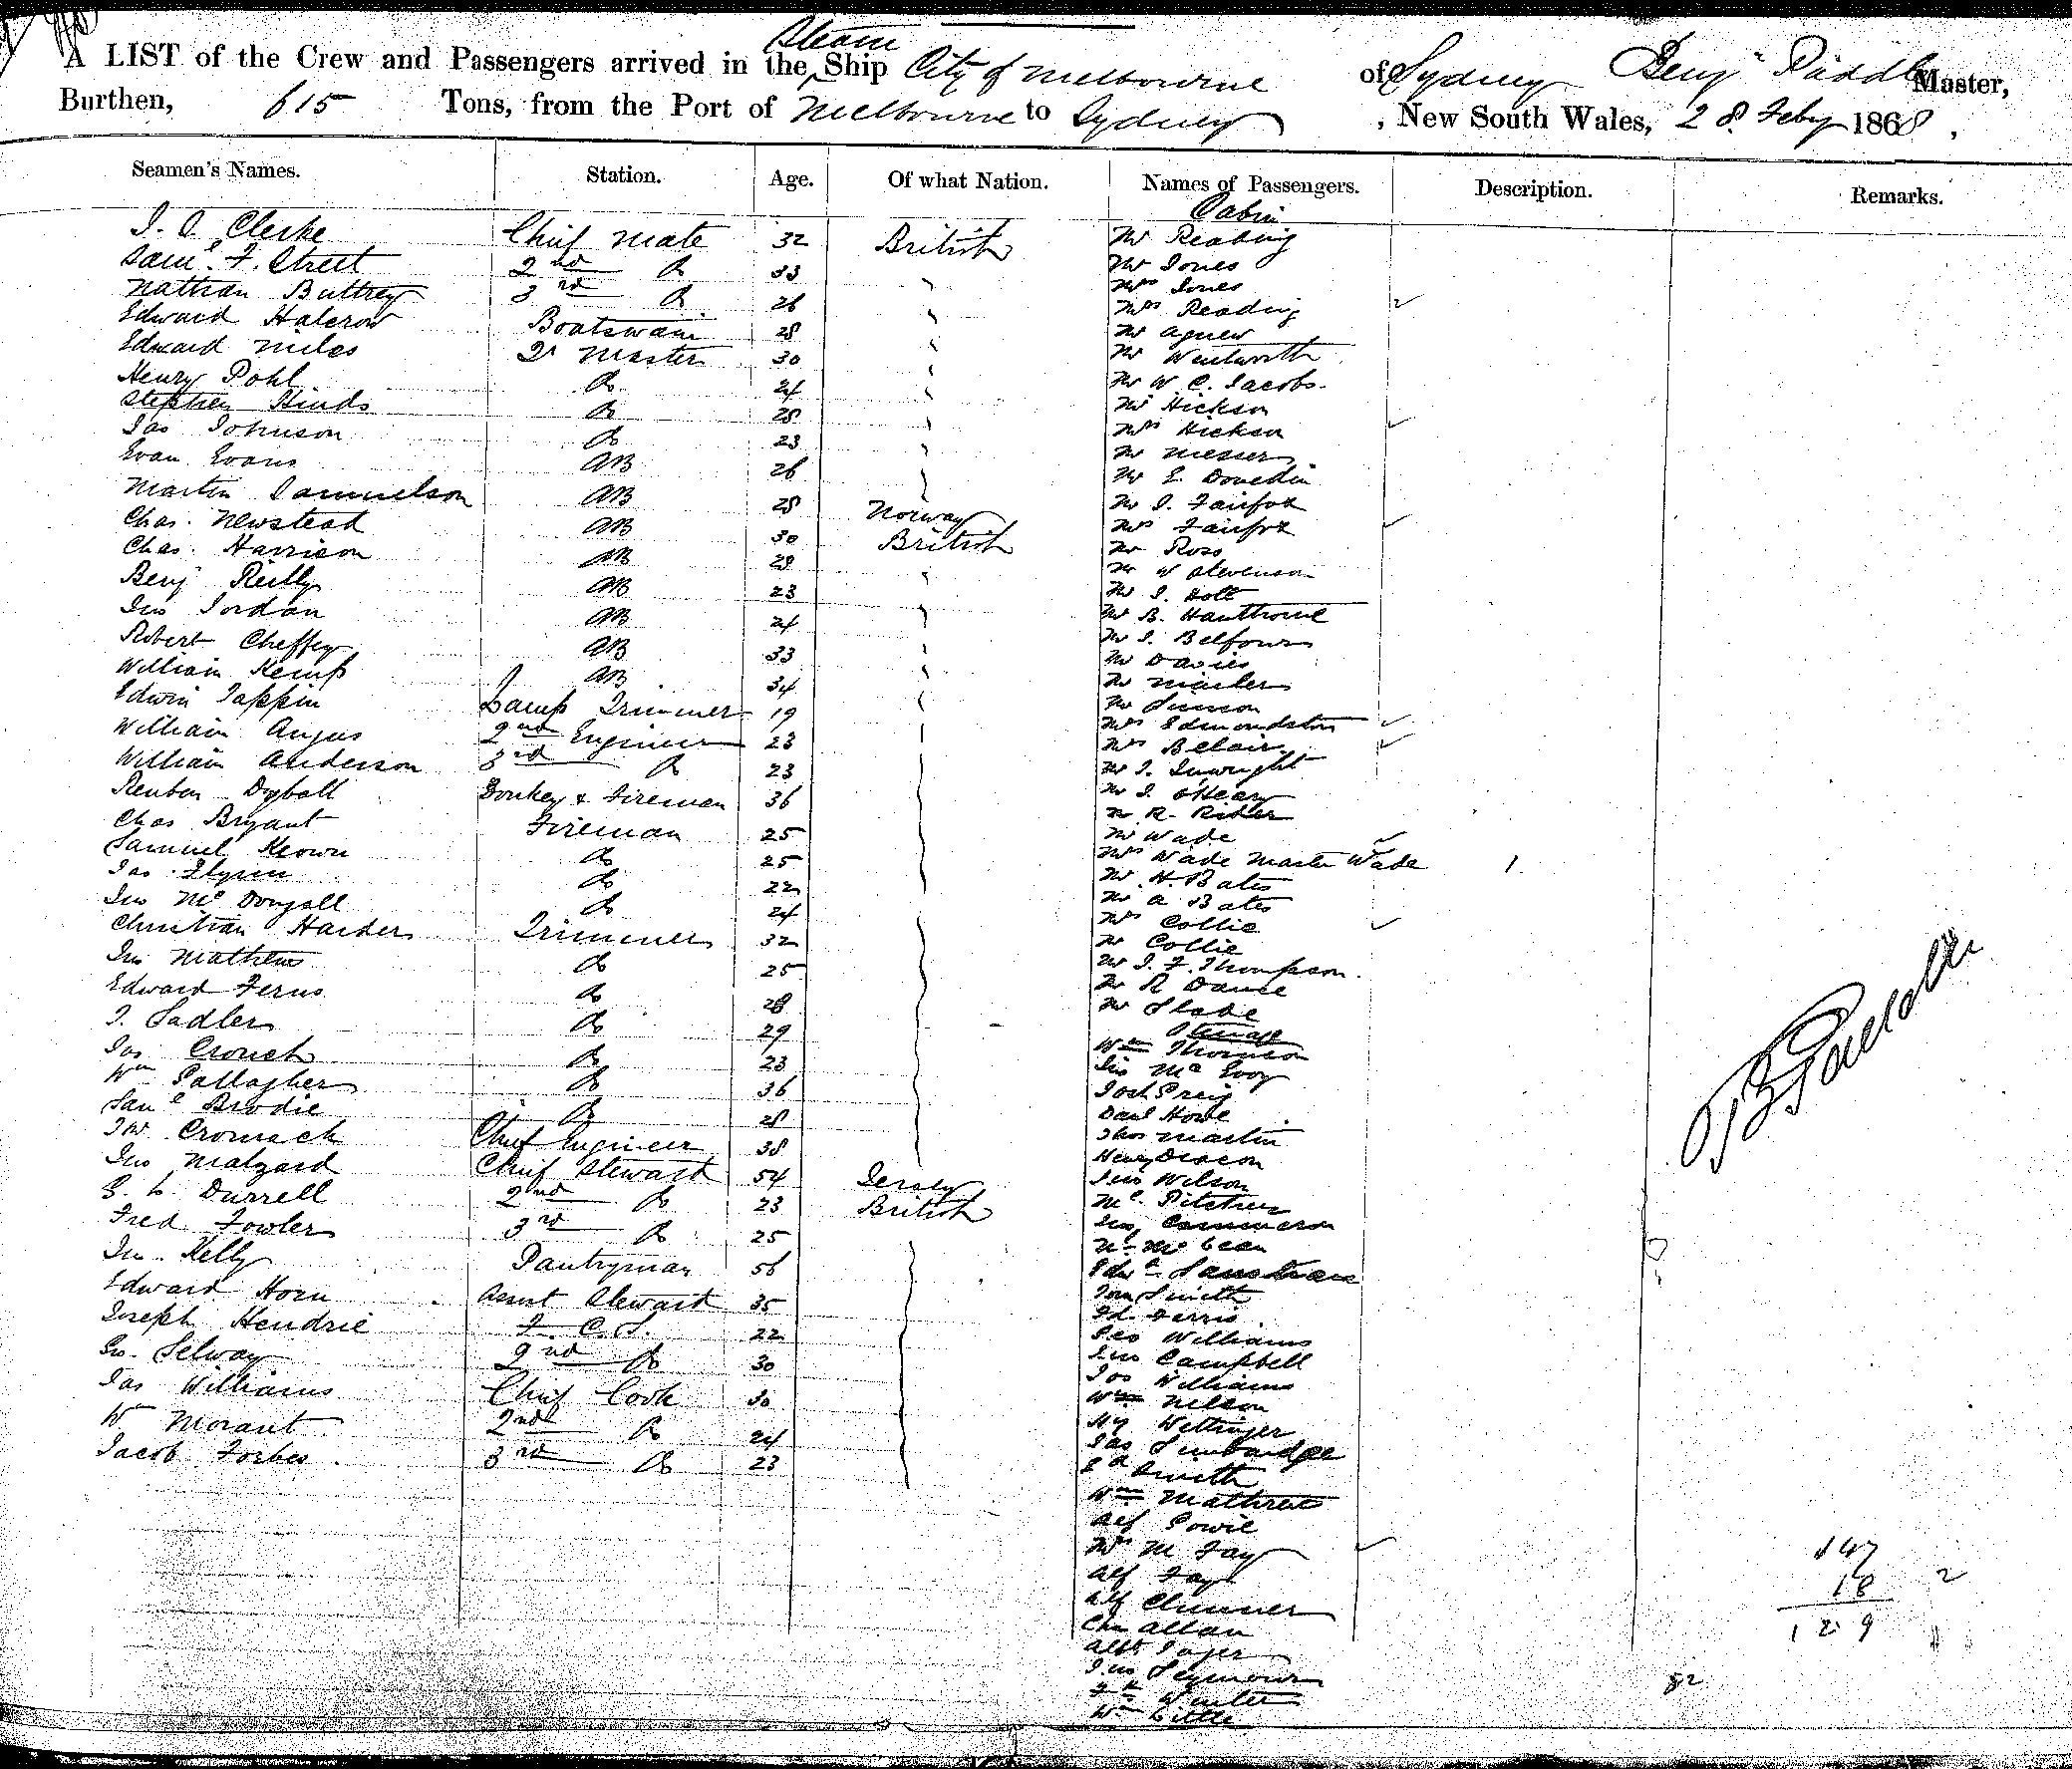 A LIST of the Crew and Passengers arrived in the Steam Ship City of Melbourne of Sydney Benj Riddle Master,
Burthen, 615 Tons, from the Port of Melbourne to Sydney, New South Wales, 28 Feby 1868,
Seamen's Names. Station. Age. Of what Nation. Names of Passengers. Description. Remarks.
Cabin
J. C. Clerke Chief Mate 32 British Mr Reading
Saml F. Street 2nd Do 33 Mr Jones
Nathan Buttrey 3rd Do 26 Mrs Jones
Mrs Reading
Edward Halcrow Boatswain 28 Mr Agnew
Edward Miles Qr Master 30 Mr Wentworth
Henry Pohl Do 24 Mr W. C. Jacobs
Stephen Hinds Do 28 Mr Hickson
Jas Johnson Do 23 Mrs Hickson
Evan Evans AB 26 Mr
Mr E. Donedin
Martin Samuelson AB 28 Norway Mr J. Fairfax
Chas. Newstead AB 30 British Mrs Fairfax
Chas. Harrison AB 29 Mr Ross
Mr W Stevenson
Benj Reilly AB 23 Mr J. Holt
Jno Jordan AB 24 Mr B. Hawthorne
Robert Cheffey AB 33 Mr J. Belfour
Mr Davies
William Kemp AB 34 Mr
Edwin Tappin Lamp Trimmer 19 Mr
Mrs Edmondston
William Angus 2nd Engineer 23 Mrs Belair
William Anderson 3rd Do 23 Mr J.
Reuben Dyball Donkey & Fireman 36 Mr J. O'Heary
Mr R. Rider
Chas Bryant Fireman 25 Mr Wade
Samuel Keown Do 25 Mrs Wade Master Wade 1
Jas Flynn Do 22 Mr H. Bates
Jno McDougall Do 24 Mr A Bates
Mrs Collie
Christian Harders Trimmer 32 Mr Collie
Jno Mathews Do 25 Mr J. F. Thompson
Mr R Dance
Edward Ferns Do 28 Mr Slade
J. Sadler Do 29 Steerage
Wm Thomson
Jas Crouch Do 23 Jno McEvoy
Wm Gallagher Do 36 Josh Greig
Saml Brodie Do 28 Danl Howe
J W Cromack Chief Engineer 38 Thos Martin
Henry Deacon
Jno Malzard Chief Steward 54 Jersey Jno Wilson
G. L. Durrell 2nd Do 23 British
Fred Fowler 3rd Do 25 Jno Cammeron
N. McLean
Jno Kelly Pantryman 56 Edwd
Edward Horn Assnt Steward 35 Tom Smith
Ed. Ferris
Joseph Hendrie F. C. S. 22 Geo Williams
Geo. Selway 2nd Do 30 Jno Campbell
Jas Williams Chief Cook 30 Jos Williams
Wm Nelson
W Morant 2nd Do 24 Hy Wettinger
Jacob Forbes 3rd Do 23 Jas
Ed Smith
Wm
Alf Powie
Mrs M Fay
Alf Fay
Alf
Chs Allan
Albt
Jno Seymour
Fk Winter
Wm Little
147
18 2
129
82